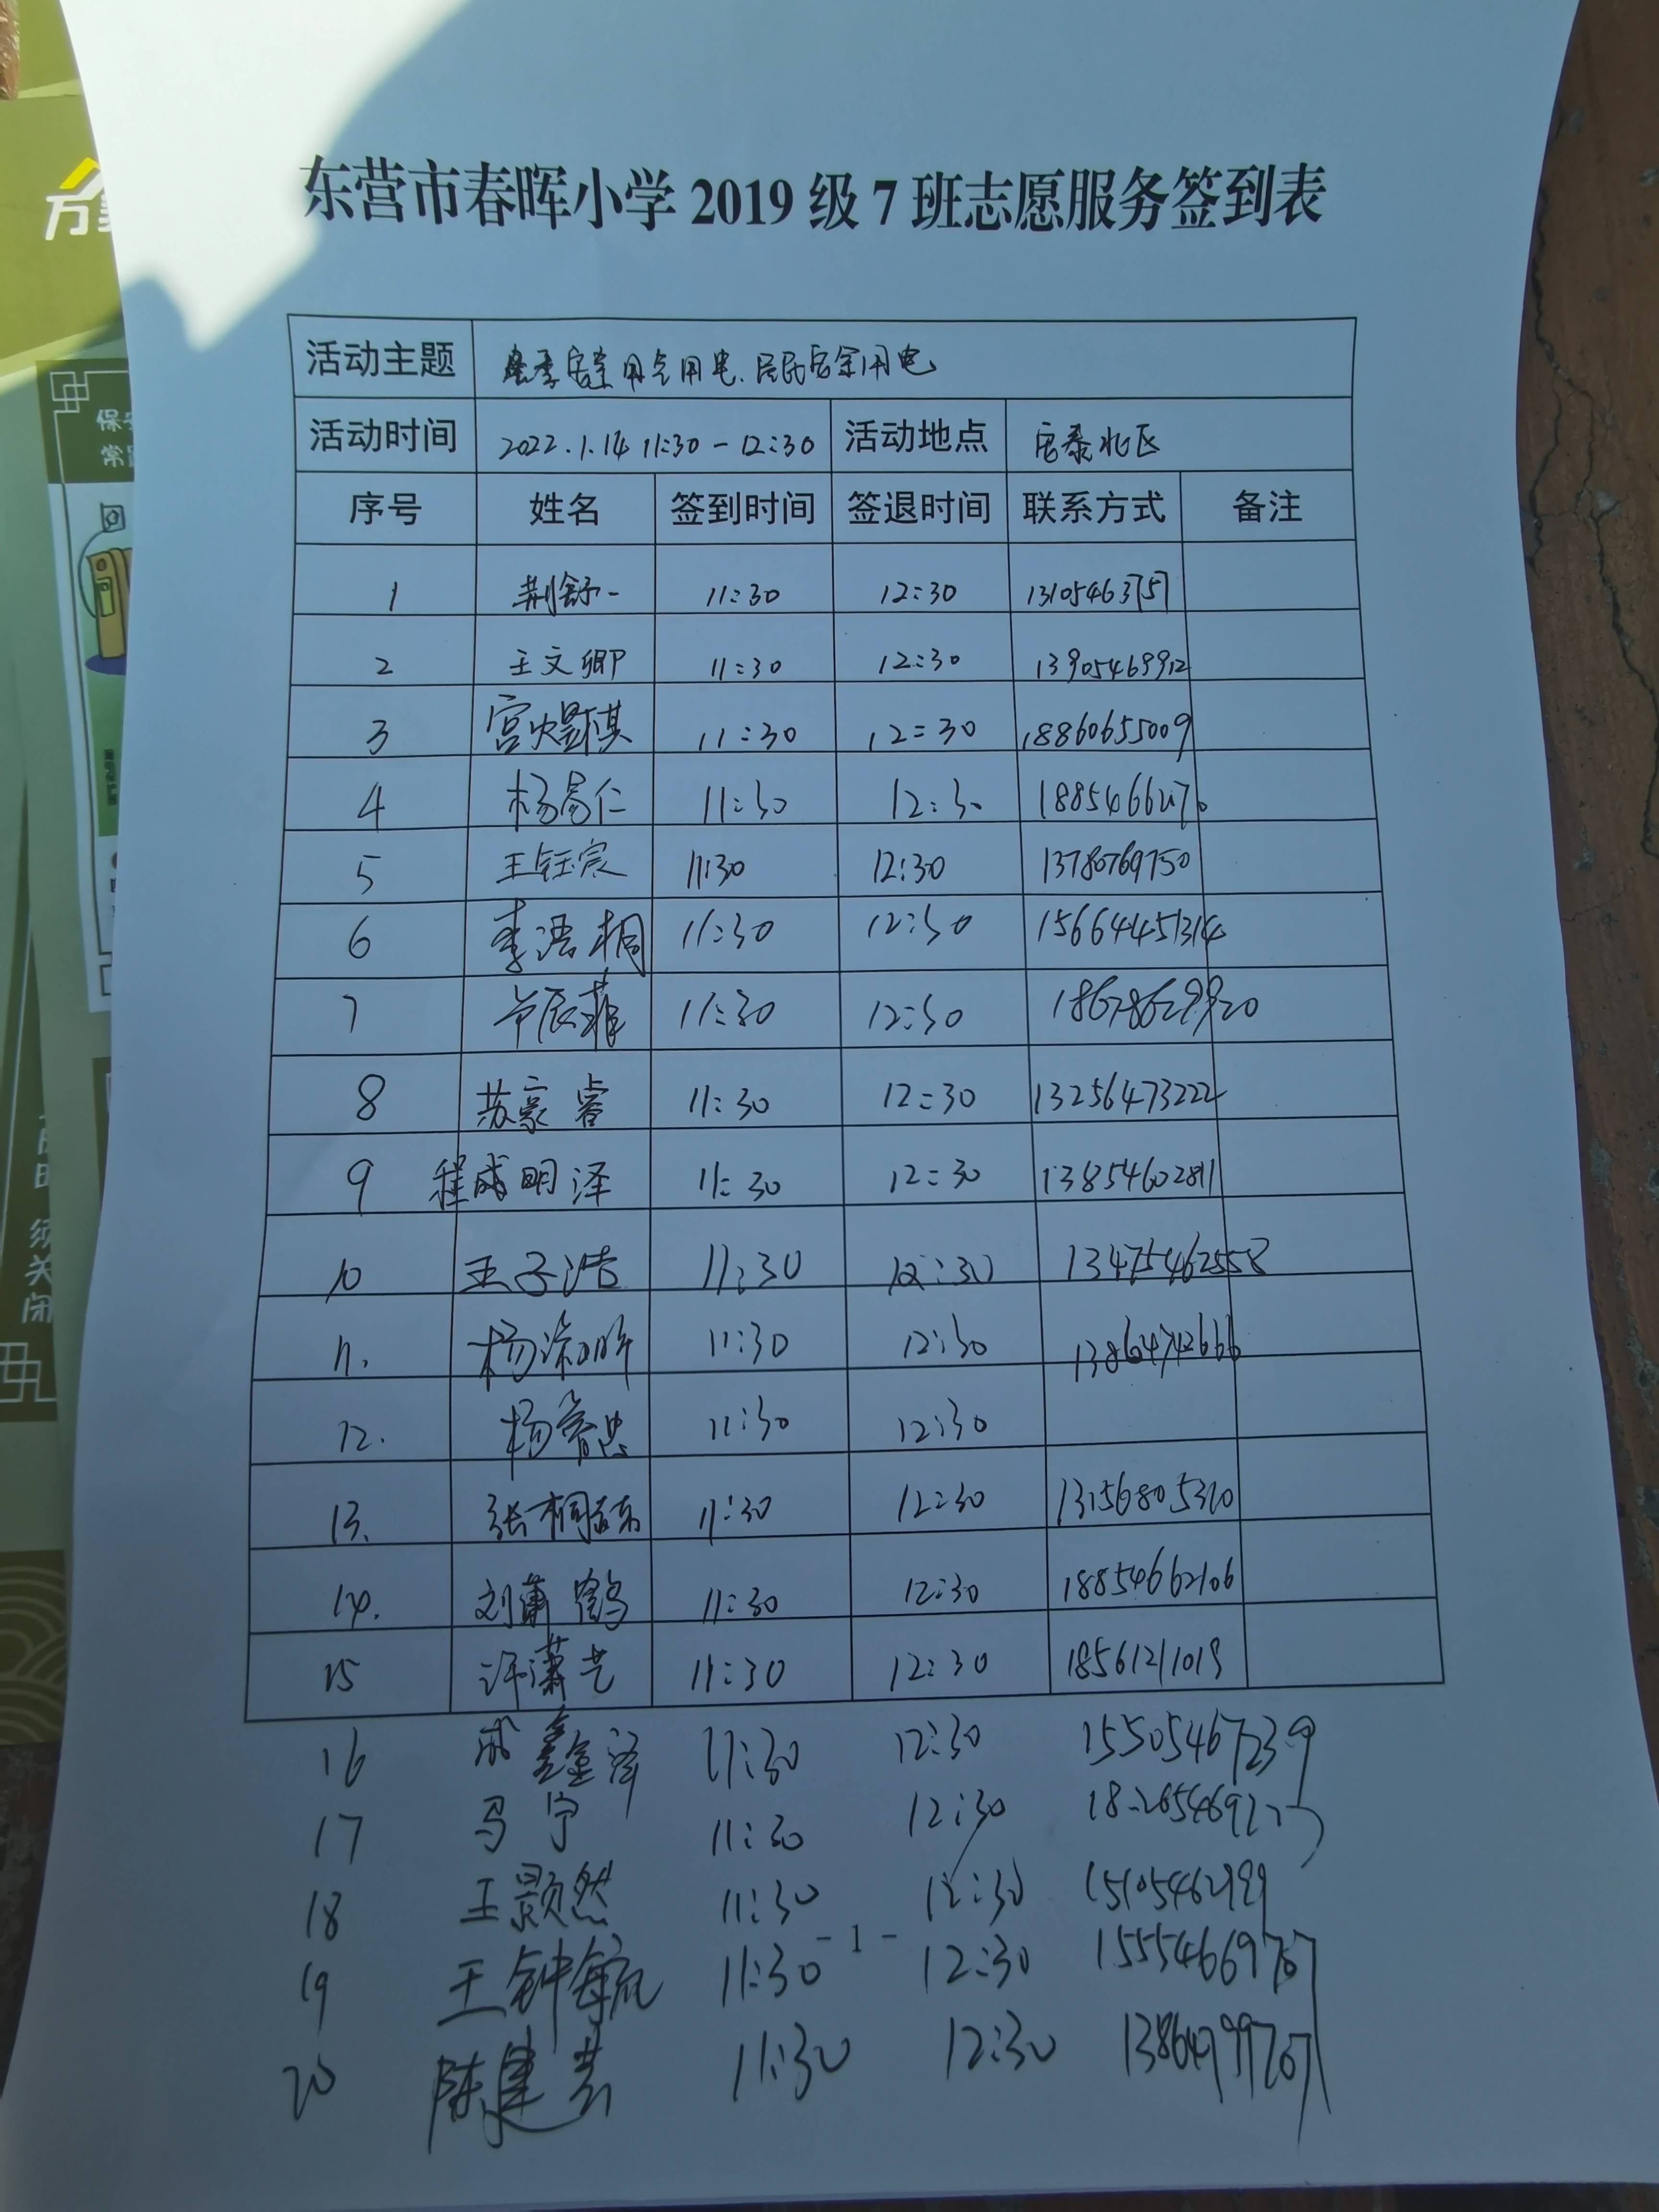 东营市春晖小学 2019 级 7 班志愿服务签到表
活动主题 冬季安全用气用电、居民安全用电
活动时间 2022.1.14 11:30-12:30 活动地点 安泰北区
序号 姓名 签到时间 签退时间 联系方式 备注
1 荆舒一 11:30 12:30 13105463757
2 王文卿 11:30 12:30 13905469912
3 宫煜棋 11:30 12:30 18860655009
4 杨易仁 11:30 12:30
5 王钰宸 11:30 12:30 13780769750
6 李浯桐 11:30 12:30 15664451314
7 辰菲 11:30 12:30 18678629920
8 苏豪睿 11:30 12:30 13256473222
9 程成明泽 11:30 12:30 13854602811
10 王子浩 11:30 12:30 13475462558
11. 杨 11:30 12:30 13864742666
12. 杨 11:30 12:30
13. 张桐 11:30 12:30 13156805320
14. 刘萧鹤 11:30 12:30 18854662106
15 许潇艺 11:30 12:30 18561211019
16 成鑫泽 11:30 12:30 15505467239
17 马宁 11:30 12:30
18 王颢然 11:30 12:30 15105462999
- 1 -
19 王钟毓 11:30 12:30 15554669767
20 陈建芸 11:30 12:30 13864799767
保安
常
须
关
闭